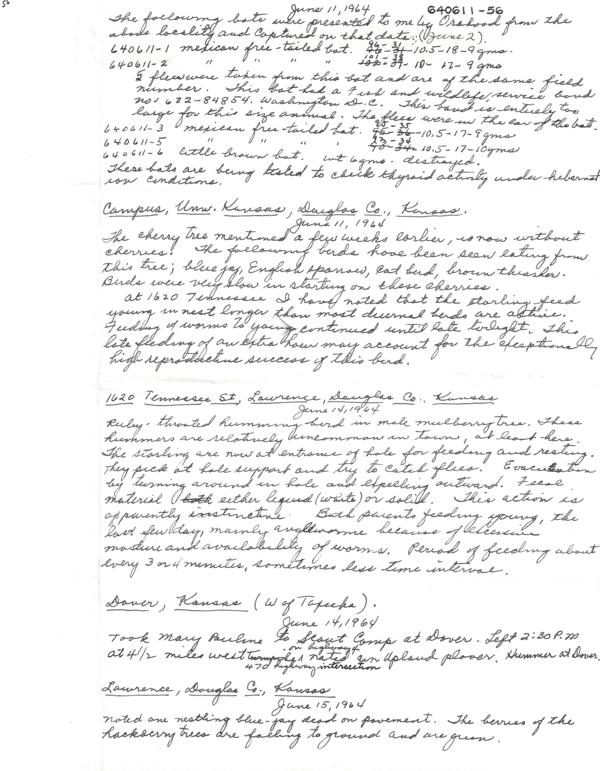 56
June 11, 1964 640611-56
The following bats were presented to me by from the
above locality and captured on that date. (June 2).
640611-1 mexican free-tailed bat. 10.5-18-9 gms.
640611-2 " " " " 10-17-9 gms
5 fleas were taken from this bat and are of the same field
number. This bat had a Fish and wildlife service band
no. 632-84854. Washington D.C. This band is entirely too
large for this size animal. The fleas were in the ear of the bat.
640611-3 mexican free-tailed bat. 10.5-17-9 gms
640611-5 " " " " 10.5-17-10 gms
640611-6 little brown bat. wt 6 gms. destroyed.
These bats are being tested to check thyroid activity under hibernat
ion conditions.
Campus, Univ. Kansas, Douglas Co., Kansas.
June 11, 1964
The cherry tree mentioned a few weeks earlier, is now without
cherries. The following birds have been seen eating from
this tree; blue jay, English sparrow, cat bird, brown thrasher.
Birds were very slow in starting on these cherries.
At 1620 Tennessee I have noted that the starling feed
young in nest longer than most diurnal birds are active.
Feeding of worms to young continued until late twilight. This
late feeding of an extra hour may account for the exceptionally
high reproductive success of this bird.
1620 Tennessee St, Lawrence, Douglas Co., Kansas
June 14, 1964
Ruby-throated humming bird in male mulberry tree. These
hummers are relatively uncommon in town, at least here.
The starling are now at entrance of hole for feeding and resting.
They pick at hole support and try to catch flies. Evacuation
by turning around in hole and expelling outward. Fecal
material both either liquid (white) or solid. This action is
apparently instinctive. Both parents feeding young, the
last few day, mainly angleworms because of excessive
moisture and availability of worms. Period of feeding about
every 3 or 4 minutes, sometimes less time interval.
Dover, Kansas (W of Topeka).
June 14, 1964
Took Mary Pauline to Scout Camp at Dover. Left 2:30 P.M
on highway 4
at 4 1/2 miles west turnpike noted an upland plover. Hummer at Dover.
470 highway intersection
Lawrence, Douglas Co., Kansas
June 15, 1964
noted one nestling blue-jay dead on pavement. The berries of the
hackberry trees are falling to ground and are green.